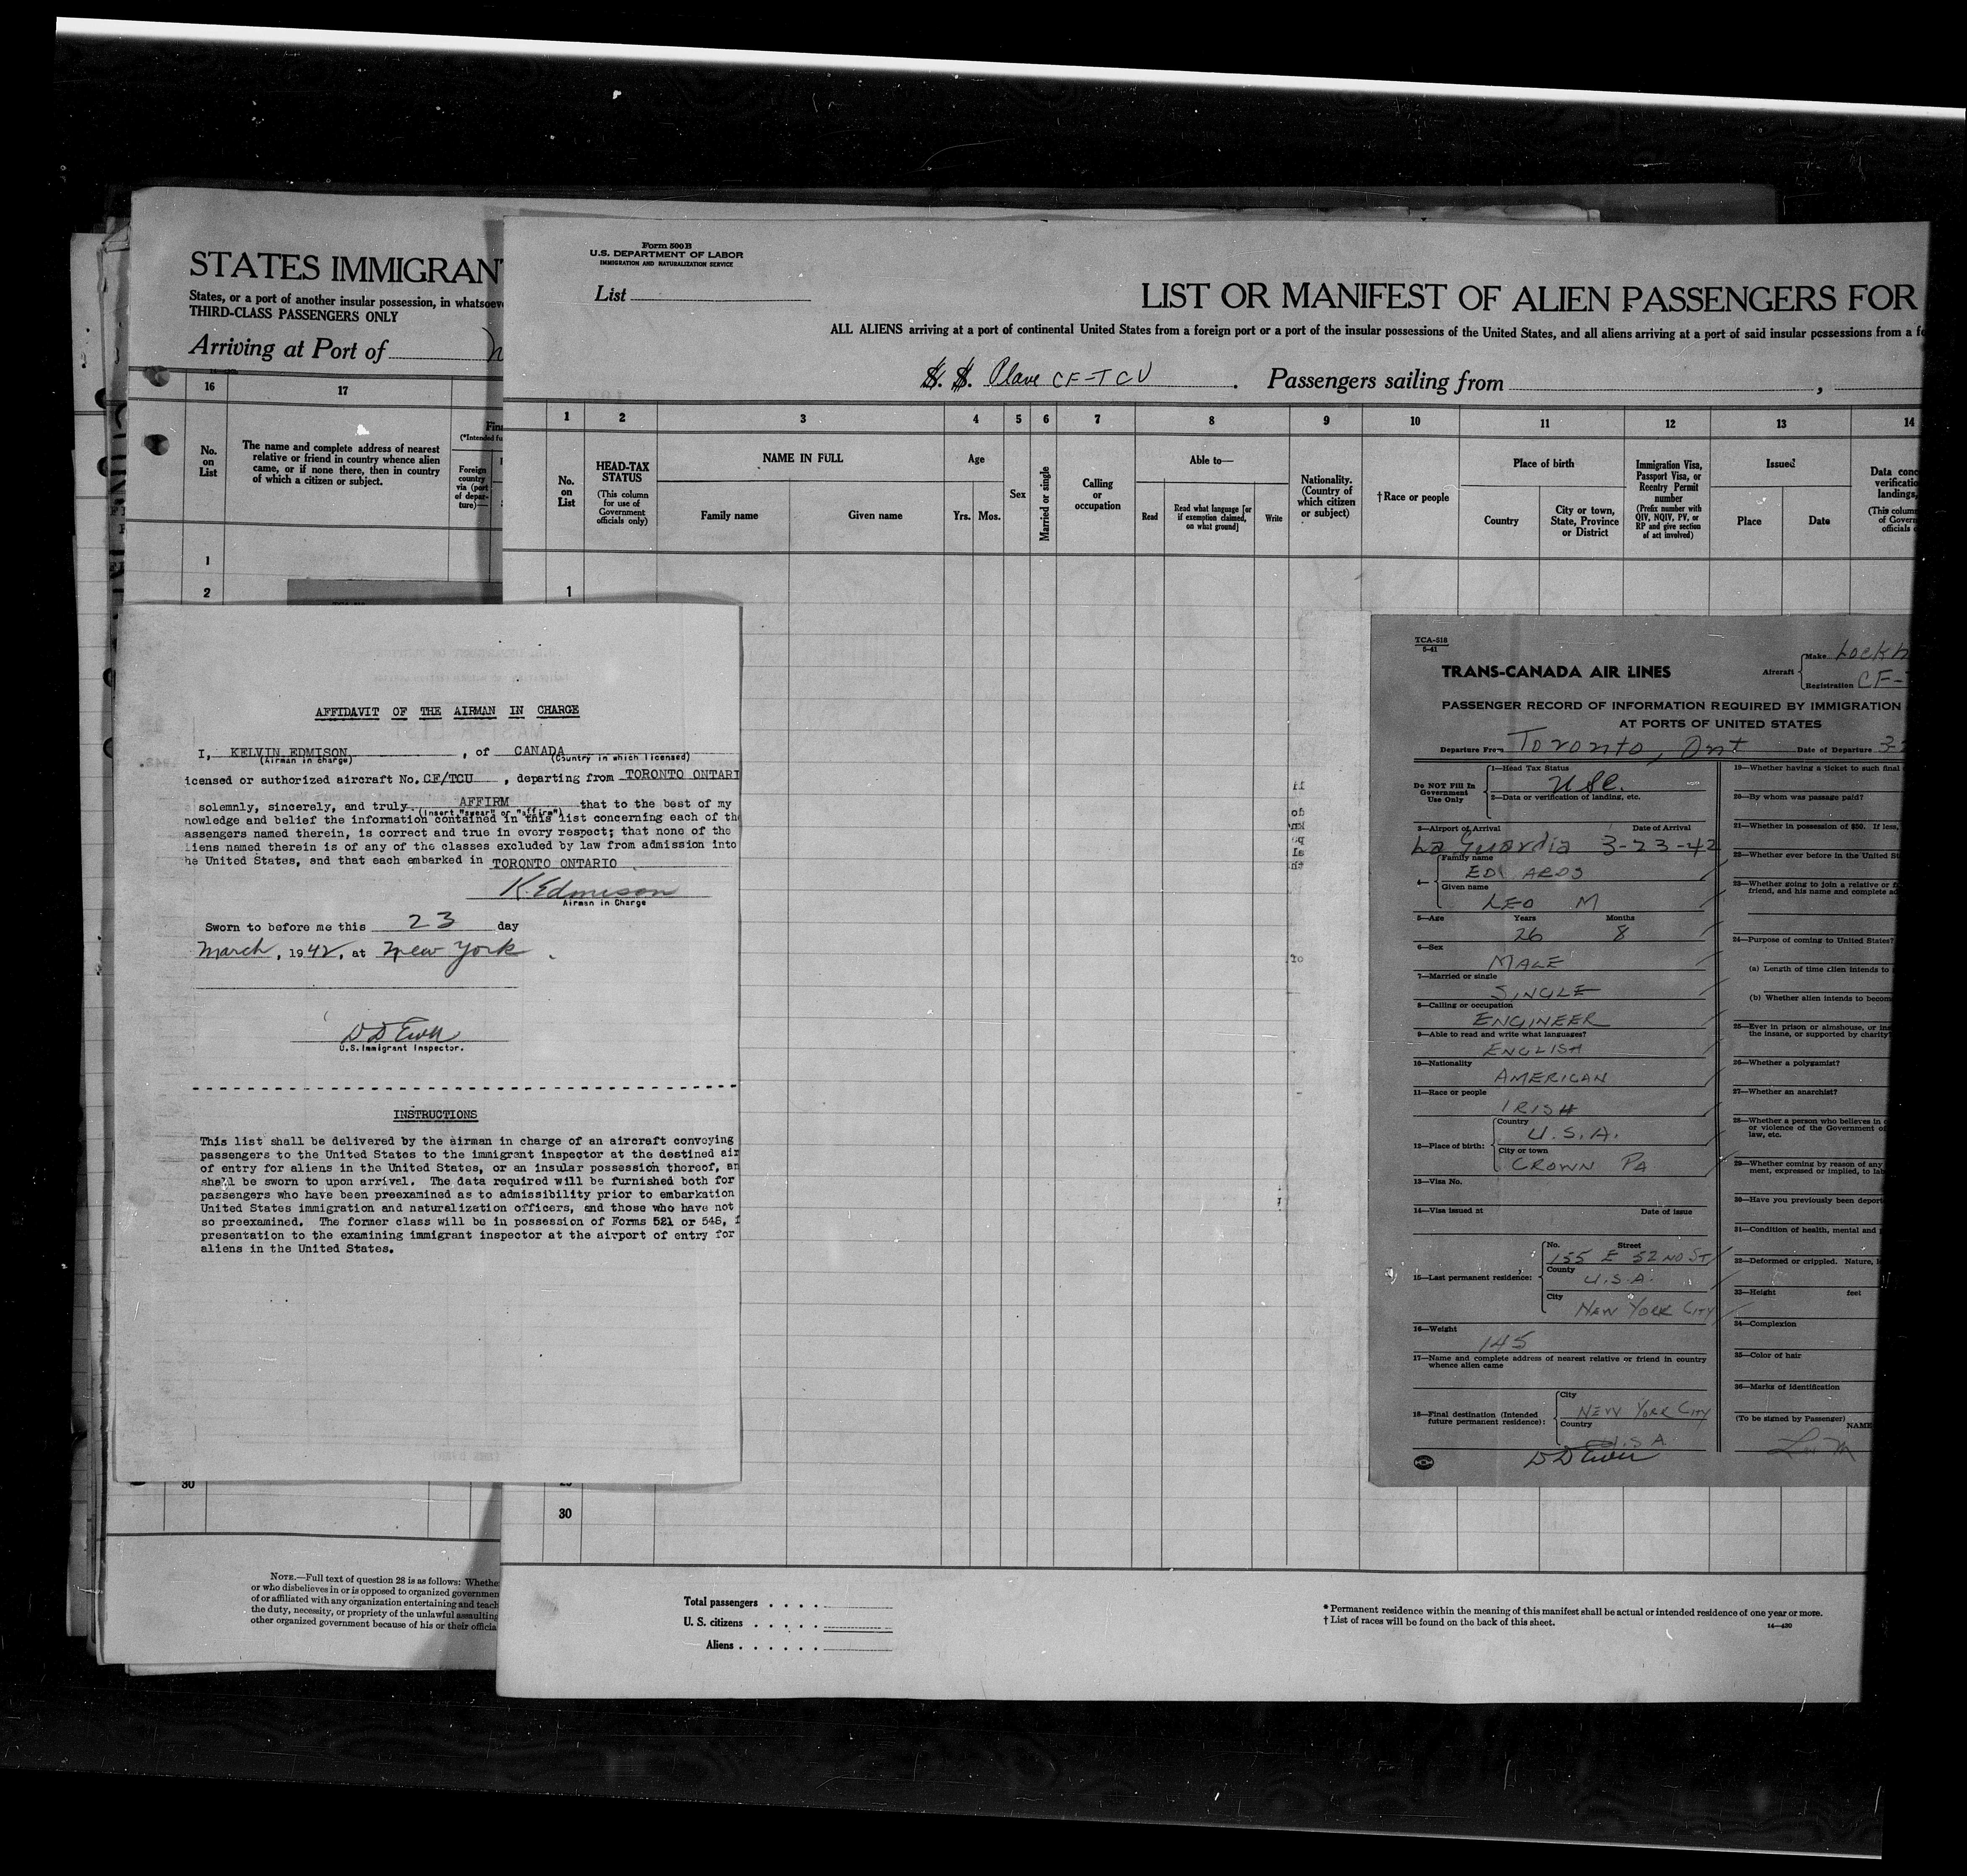 STATES IMMIGRAN
States, or a port of another insular possession, in whatsoev
THIRD-CLASS PASSENGERS ONLY
Arriving at Port of
16
17
No.
on
List
The name and complete address of nearest
relative or friend in country whence alien
came, or if none there, then in country
of which a citizen or subject.
Fin
(*Intended fu
Foreign
country
via (port
of depar-
ture)—
1
2
30
NOTE.—Full text of question 28 is as follows: Whethe
or who disbelieves in or is opposed to organized governmen
of or affiliated with any organization entertaining and teach
the duty, necessity, or propriety of the unlawful assaulting
other organized government because of his or their officia
Form 500 B
U.S. DEPARTMENT OF LABOR
IMMIGRATION AND NATURALIZATION SERVICE
List
LIST OR MANIFEST OF ALIEN PASSENGERS FOR
ALL ALIENS arriving at a port of continental United States from a foreign port or a port of the insular possessions of the United States, and all aliens arriving at a port of said insular possessions from a fo
S. S. Plane CF-TCU . Passengers sailing from ,
1 2 3 4 5 6 7 8 9 10 11 12 13 14
No.
on
List
HEAD-TAX
STATUS
(This column
for use of
Government
officials only)
NAME IN FULL
Family name
Given name
Age
Yrs. Mos.
Sex
Married or single
Calling
or
occupation
Able to—
Read
Read what language [or
if exemption claimed,
on what ground]
Write
Nationality.
(Country of
which citizen
or subject)
†Race or people
Place of birth
Country
City or town,
State, Province
or District
Immigration Visa,
Passport Visa, or
Reentry Permit
number
(Prefix number with
QIV, NQIV, PV, or
RP and give section
of act involved)
Issued
Place
Date
Data conc
verificatio
landings,
(This colum
of Govern
officials
1
30
Total passengers . . . .
U. S. citizens . . . . .
Aliens . . . . . .
* Permanent residence within the meaning of this manifest shall be actual or intended residence of one year or more.
† List of races will be found on the back of this sheet.
14—420
AFFIDAVIT OF THE AIRMAN IN CHARGE
I, KELVIN EDMISON , of CANADA
(Airman in charge) (Country in which licensed)
icensed or authorized aircraft No. CF/TCU , departing from TORONTO ONTARI
solemnly, sincerely, and truly AFFIRM that to the best of my
(insert "swear" or "affirm")
nowledge and belief the information contained in this list concerning each of the
assengers named therein, is correct and true in every respect; that none of the
liens named therein is of any of the classes excluded by law from admission into
he United States, and that each embarked in TORONTO ONTARIO
K. Edmison
Airman in Charge
Sworn to before me this 23 day
March, 1942, at New York .
D D Ewen
U.S.Immigrant Inspector.
INSTRUCTIONS
This list shall be delivered by the airman in charge of an aircraft conveying
passengers to the United States to the immigrant inspector at the destined air
of entry for aliens in the United States, or an insular possession thereof, an
shall be sworn to upon arrival. The data required will be furnished both for
passengers who have been preexamined as to admissibility prior to embarkation
United States immigration and naturalization officers, and those who have not
so preexamined. The former class will be in possession of Forms 521 or 548, f
presentation to the examining immigrant inspector at the airport of entry for
aliens in the United States.
TCA-518
5-41
TRANS-CANADA AIR LINES
Aircraft
Make Lockh
Registration CF-
PASSENGER RECORD OF INFORMATION REQUIRED BY IMMIGRATION
AT PORTS OF UNITED STATES
Departure From Toronto, Ont Date of Departure 3-2
Do NOT Fill In
Government
Use Only
1—Head Tax Status
USC.
2—Data or verification of landing, etc.
3—Airport of Arrival Date of Arrival
La Guardia 3-23-42
4—
Family name
ED ARDS
Given name
LEO M
5—Age Years Months
26 8
6—Sex
MALE
7—Married or single
SINGLE
8—Calling or occupation
ENGINEER
9—Able to read and write what languages?
ENGLISH
10—Nationality
AMERICAN
11—Race or people
IRISH
12—Place of birth:
Country
U.S.A.
City or town
CROWN PA
13—Visa No.
14—Visa issued at Date of issue
15—Last permanent residence:
No. Street
155 E 52ND ST
County
U.S.A.
City
NEW YORK CITY
16—Weight
145
17—Name and complete address of nearest relative or friend in country
whence alien came
18—Final destination (Intended
future permanent residence):
City
NEW YORK CITY
Country
U.S.A
D D Ewen
19—Whether having a ticket to such final
20—By whom was passage paid?
21—Whether in possession of $50. If less,
22—Whether ever before in the United St
23—Whether going to join a relative or f
friend, and his name and complete ad
24—Purpose of coming to United States?
(a) Length of time alien intends to
(b) Whether alien intends to becom
25—Ever in prison or almshouse, or ins
the insane, or supported by charity?
26—Whether a polygamist?
27—Whether an anarchist?
28—Whether a person who believes in
or violence of the Government of
law, etc.
29—Whether coming by reason of any
ment, expressed or implied, to lab
30—Have you previously been deport
31—Condition of health, mental and
32—Deformed or crippled. Nature, l
33—Height feet
34—Complexion
35—Color of hair
36—Marks of identification
(To be signed by Passenger)
NAME
Leo M